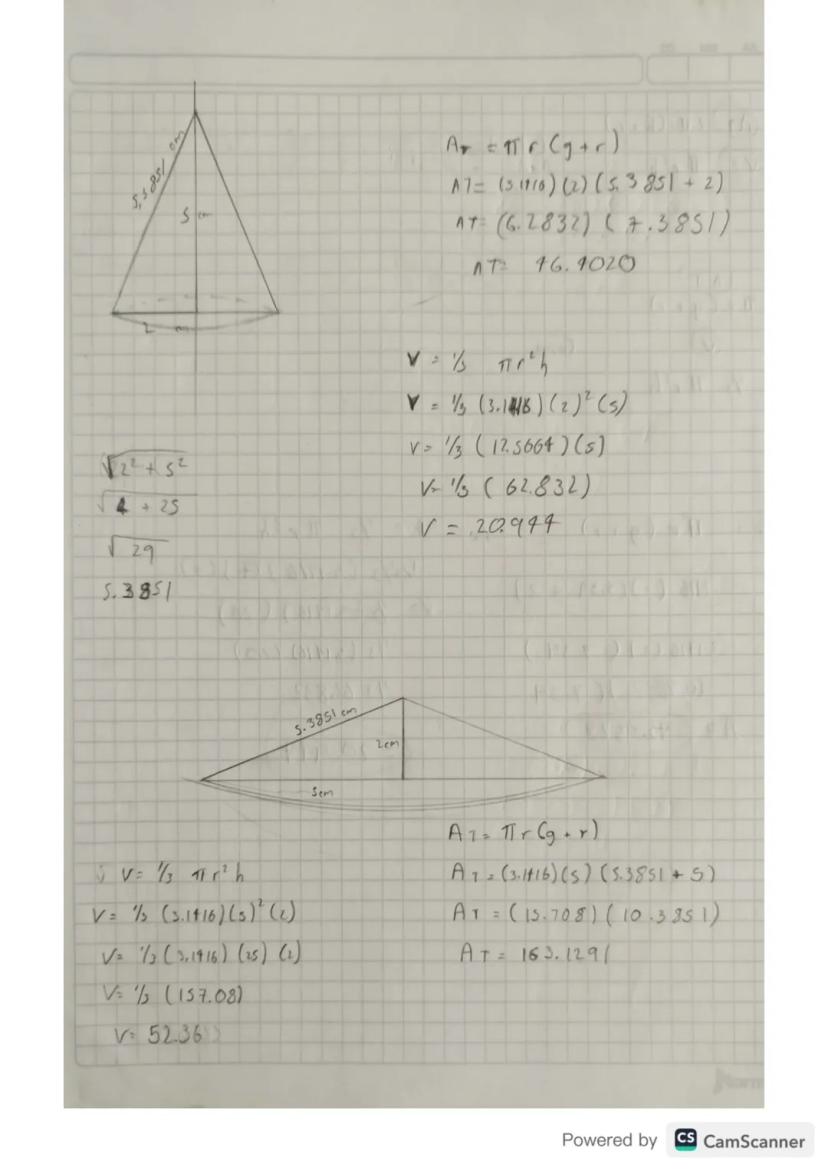 5.3851 cm
5 cm
2 cm
AT = π r (g+r)
AT= (3.1416) (2) (5.3851 + 2)
AT= (6.2832) (7.3851)
AT= 46.4020
V = 1/3 π r² h
V = 1/3 (3.1416) (2)² (5)
V= 1/3 (12.5664) (5)
V= 1/3 (62.832)
V = 20.944
√2² + 5²
√4 + 25
√29
5.3851
5.3851 cm
2cm
5cm
AT= π r (g+r)
AT= (3.1416) (5) (5.3851 + 5)
AT = (15.708) (10.3851)
AT= 163.1291
V= 1/3 π r² h
V= 1/3 (3.1416) (5)² (2)
V= 1/3 (3.1416) (25) (2)
V= 1/3 (157.08)
V= 52.36
Powered by CS CamScanner